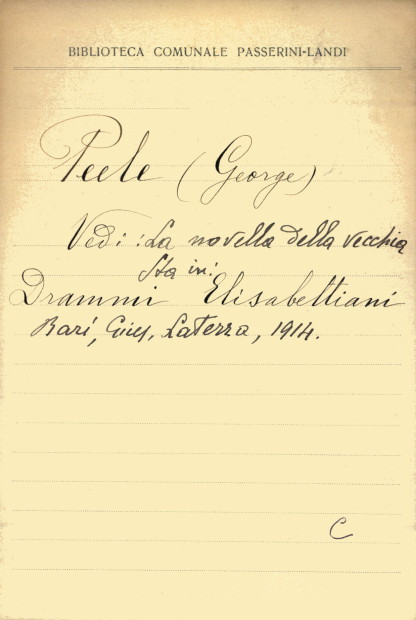 BIBLIOTECA COMUNALE PASSERINI-LANDI
Peele (George)
Vedi: La novella della vecchia
Sta in:
Drammi Elisabettiani
Bari, Laterza, 1914.
C